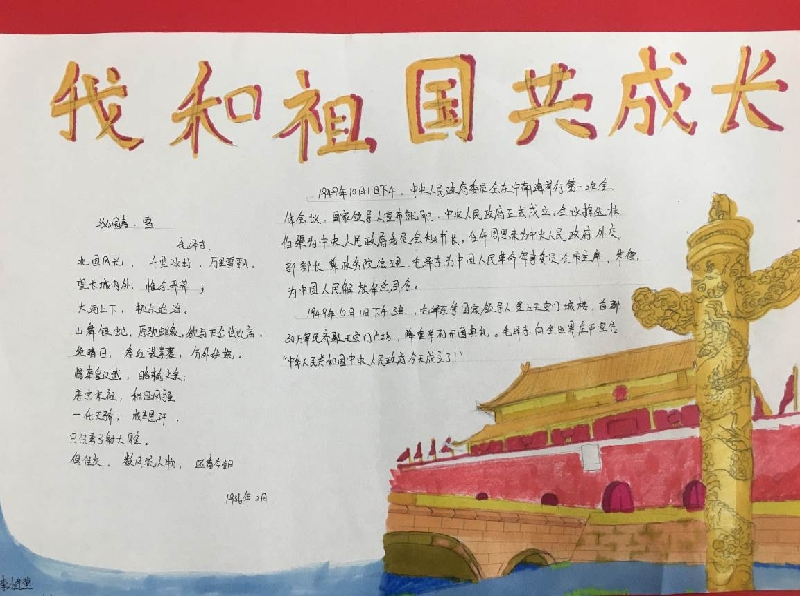 我和祖国共成长
沁园春·雪
毛泽东
北国风光，千里冰封，万里雪飘。
望长城内外，惟余莽莽；
大河上下，顿失滔滔。
山舞银蛇，原驰蜡象，欲与天公试比高。
须晴日，看红装素裹，分外妖娆。
一代天骄，成吉思汗，
只识弯弓射大雕。
俱往矣，数风流人物，还看今朝
1936年2月
1949年10月1日下午，中央人民政府委员会在中南海举行第一次全
体会议。国家领导人宣布就职，中央人民政府正式成立。会议推选林
伯渠为中央人民政府委员会秘书长，任命周恩来为中央人民政府
毛泽东为中国人民革命军事委员会主席，朱德
为中国人民解放军总司令。
1949年10月1日下午3点，毛泽东等国家领导人登上天安门城楼，首都
30万军民齐聚天安门广场，隆重举行开国典礼。毛泽东向全世界庄严宣告
"中华人民共和国中央人民政府今天成立了！"